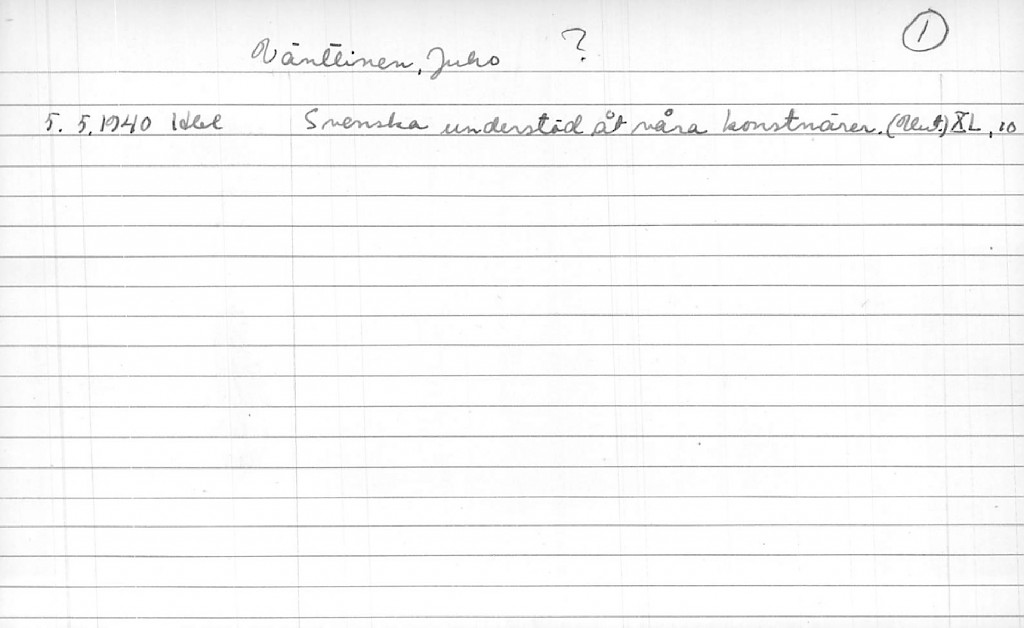 Vänttinen, Juho ? 1
5. 5. 1940 Hbl Svenska understöd åt våra konstnärer. (Uut.) XL, 10